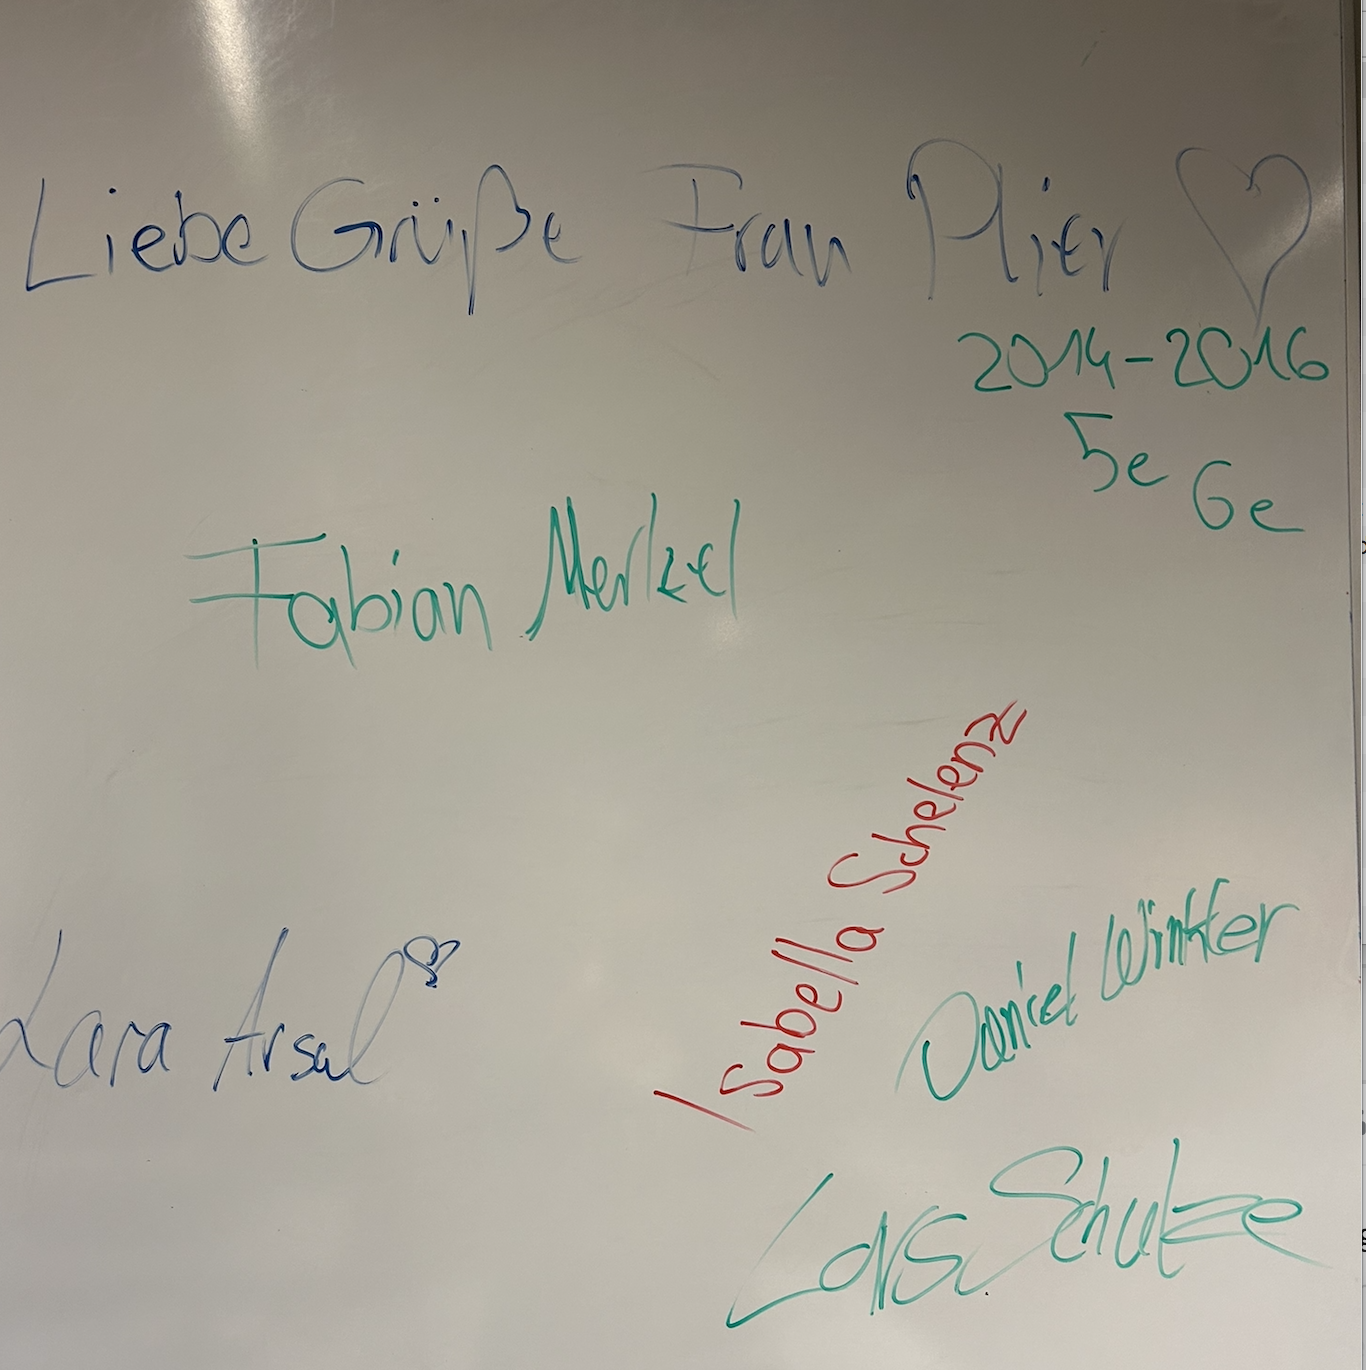 Liebe Grüße Frau Plier ♡
2014-2016
5e 6e
Fabian Merkel
Isabella Schelenz
Lara Arsal
Daniel Winkler
Lars Schulze